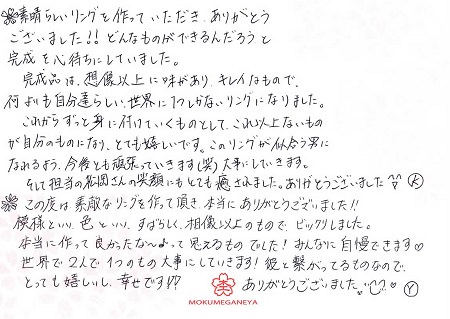 素晴らしいリングを作っていただき、ありがとう
ございました!!どんなものができるんだろうと
完成を心待ちにしていました。
完成品は、想像以上に味があり、キレイなもので、
何よりも自分達らしい、世界に1つしかないリングになりました。
これからずっと身に付けていくものとして、これ以上ないもの
が自分のものになり、とても嬉しいです。このリングが似合う男に
なれるよう、今後とも頑張っていきます(笑)大事にしていきます。
そして担当の松岡さんの笑顔にもとても癒されました。ありがとうございました K
この度は素敵なリングを作って頂き、本当にありがとうございました!!
模様といい、色といい、すばらしく、相像以上のもので、ビックリしました。
本当に作って良かったな〜よって思えるものでした!みんなに自慢できます♡
世界で2人で1つのもの大事にしていきます!彼と繋がってるものなので、
とっても嬉しいし、幸せです!? ありがとうございました。 Y
MOKUMEGANEYA